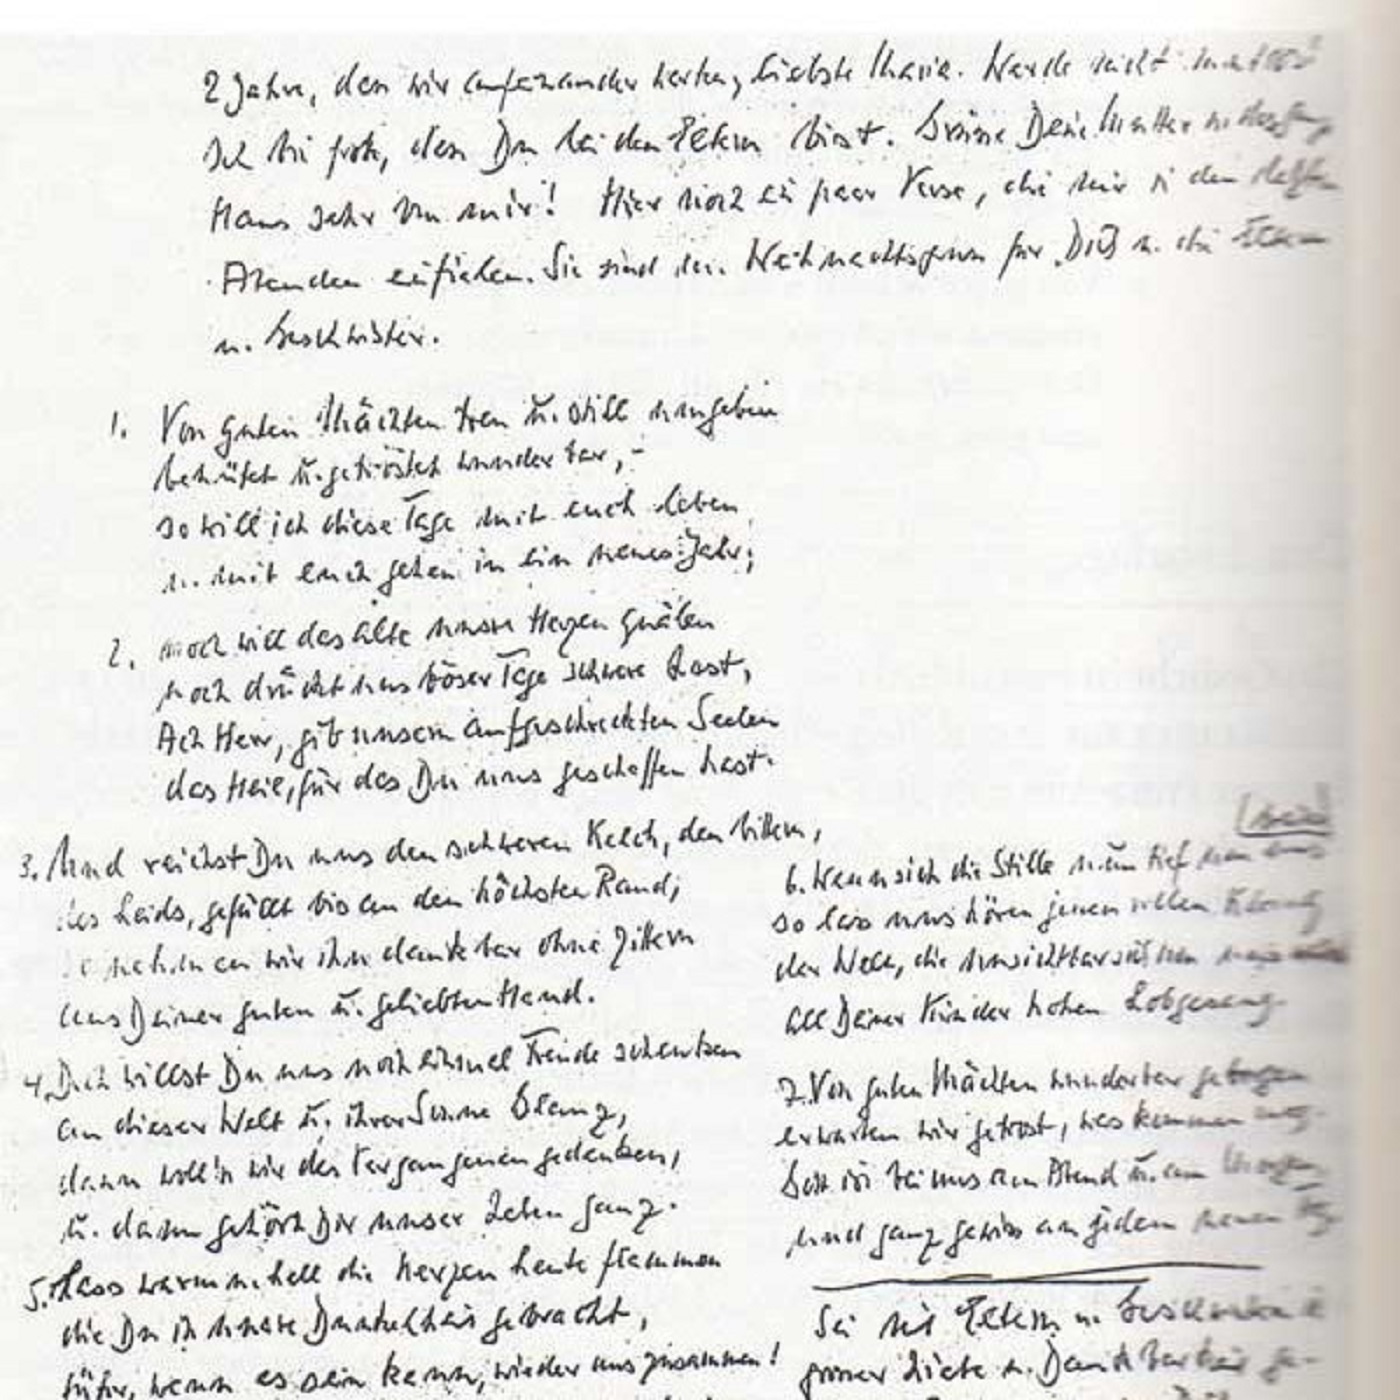 2 Jahre, dass wir aufeinander warten, liebste Maria. Werde nicht mutlos!
Ich bin froh, dass Du bei den Eltern bist. Grüsse Deine Mutter u. das ganze
Haus sehr von mir! Hier noch ein paar Verse, die mir in den letzten
Abenden einfielen. Sie sind der Weihnachtsgruss für Dich u. die Eltern
u. Geschwister.
1. Von guten Mächten treu u. still umgeben
behütet u. getröstet wunderbar, –
so will ich diese Tage mit euch leben
u. mit euch gehen in ein neues Jahr;
2. noch will das alte unsre Herzen quälen
noch drückt uns böser Tage schwere Last,
Ach Herr, gib unsern aufgeschreckten Seelen
das Heil, für das Du uns geschaffen hast.
3. Und reichst Du uns den schweren Kelch, den bittern,
des Leids, gefüllt bis an den höchsten Rand,
so nehmen wir ihn dankbar ohne Zittern
aus Deiner guten u. geliebten Hand.
4. Doch willst Du uns noch einmal Freude schenken
an dieser Welt u. ihrer Sonne Glanz,
dann woll'n wir des Vergangenen gedenken,
u. dann gehört Dir unser Leben ganz.
5. Lass warm u. hell die Kerzen heute flammen
die Du in unsre Dunkelheit gebracht,
führ, wenn es sein kann, wieder uns zusammen!
6. Wenn sich die Stille nun tief um uns
so lass uns hören jenen vollen Klang
der Welt, die unsichtbar sich um uns
all Deiner Kinder hohen Lobgesang.
7. Von guten Mächten wunderbar geborgen
erwarten wir getrost, was kommen mag.
Gott ist bei uns am Abend u. am Morgen,
und ganz gewiss an jedem neuen Tag.
Sei mit Eltern u. Geschwistern in
grosser Liebe u. Dankbarkeit